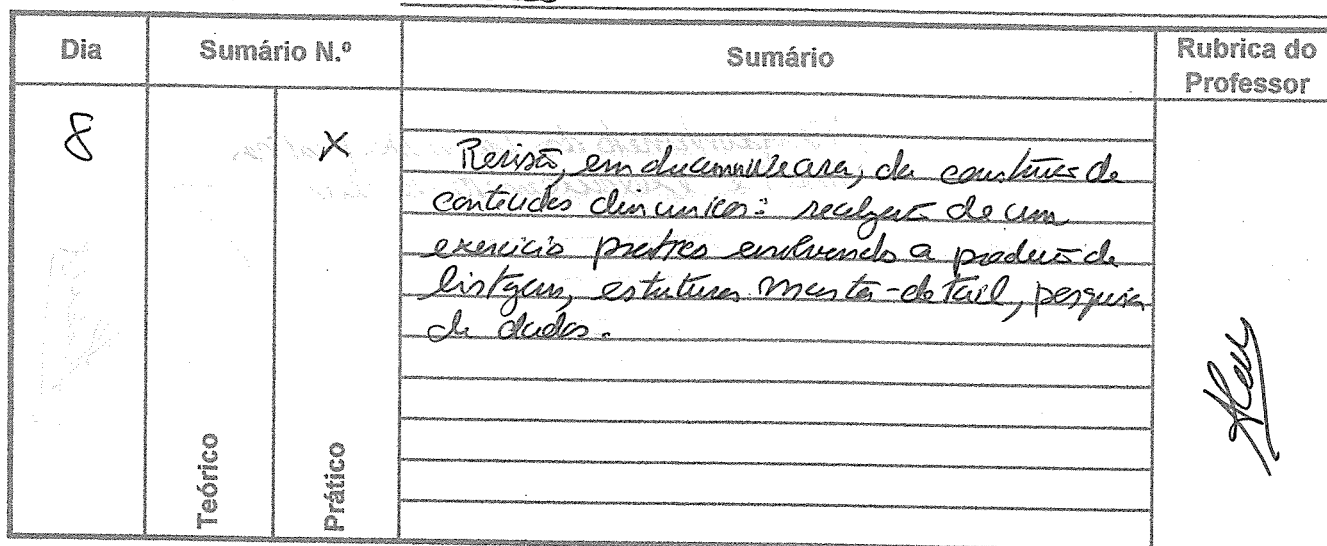 Dia
Sumário N.º
Sumário
Rubrica do
Professor
8
X
Revisão, em dreamweaver, da construção de
conteúdos dinâmicos: realização de um
exercício prático envolvendo a produção de
listagens, estruturas master-detail, pesquisa
de dados.
Teórico
Prático